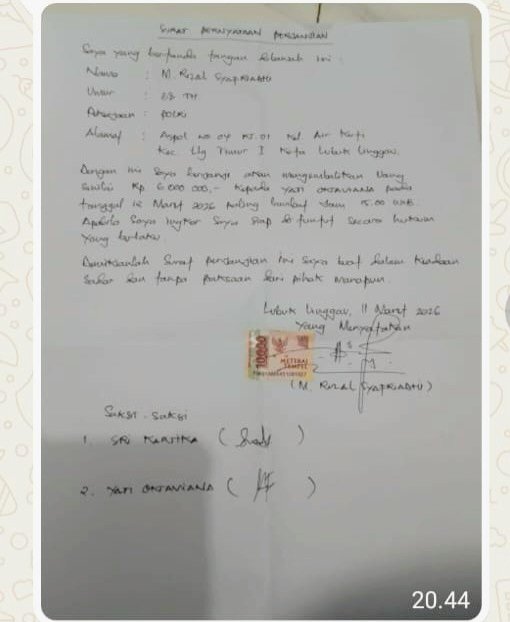 SURAT PERNYATAAN PERJANJIAN
Saya yang bertanda tangan dibawah ini :
Nama : M. Rizal SYAPRIADHI
Umur : 28 TH
Pekerjaan : POLRI
Alamat : Aspol No 04 RT 01 Kel. Air Kuti
Kec. Llg Timur I Kota Lubuk Linggau.
Dengan ini saya berjanji akan mengembalikan Uang
Senilai Rp 6.000.000,- Kepada YATI OKTAVIANA pada
tanggal 12 Maret 2026 paling lambat Jam 15.00 WIB.
Apabila Saya ingkar Saya Siap di tuntut Secara hukum
Yang berlaku.
Demikianlah Surat perjanjian ini saya buat dalam Keadaan
Sadar dan tanpa paksaan dari pihak manapun.
Lubuk Linggau, 11 Maret 2026
Yang Menyatakan
10000
METERAI
TEMPEL
(M. RIZAL SYAPRIADHI)
Saksi - Saksi
1. SRI KARTIKA ( )
2. YATI OKTAVIANA ( )
20.44